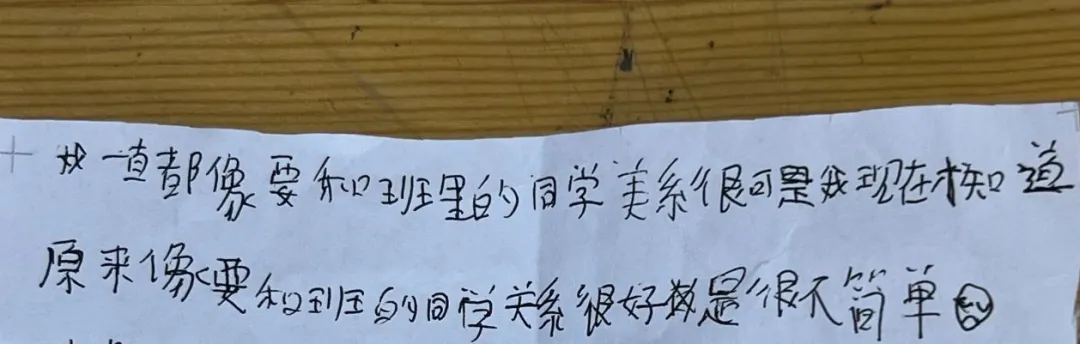 我一直都像要和班里的同学美系很可是我现在才知道
原来像要和班的同学关系很好做是很不简单